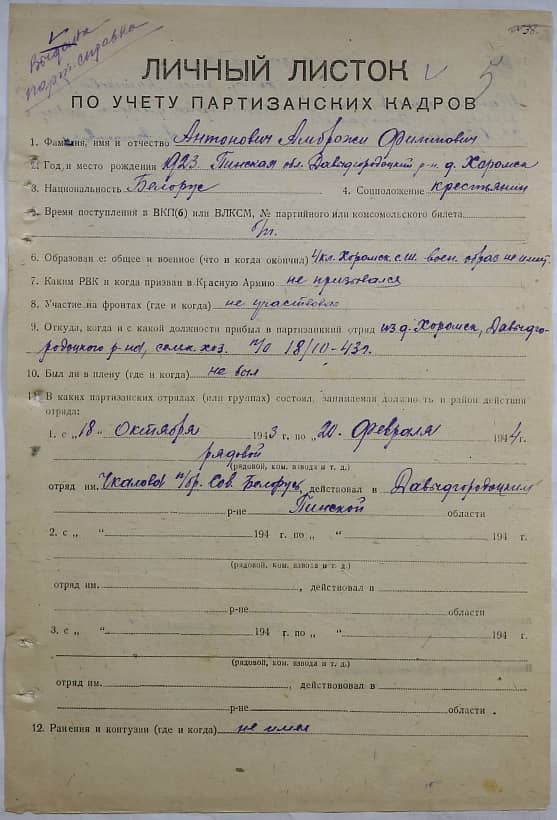 Выдана
парт. справка
38.
5
ЛИЧНЫЙ ЛИСТОК
ПО УЧЕТУ ПАРТИЗАНСКИХ КАДРОВ
1. Фамилия, имя и отчество Антонович Амброжи Филипович
2. Год и место рождения 1923. Пинская обл. Давыдгородоцкий р-н д. Хоромск
3. Национальность Белорус 4. Соцположение крестьянин
5. Время поступления в ВКП(б) или ВЛКСМ, № партийного или комсомольского билета
б/п.
6. Образование: общее и военное (что и когда окончил) 4 кл. Хоромск. с.ш. воен. образ не имеет
7. Каким РВК и когда призван в Красную Армию не призовался
8. Участие на фронтах (где и когда) не участвовал
9. Откуда, когда и с какой должности прибыл в партизанский отряд из д. Хоромск, Давыдго-
родоцкого р-на, сельк. хоз. п/о 18/10-43г.
10. Был ли в плену (где и когда) не был
11. В каких партизанских отрядах (или группах) состоял, занимаемая должность и район действия
отряда:
1. с „18" Октября 1943 г. по „20. Февраля 1944 г.
рядовой
(рядовой, ком. взвода и т. д.)
отряд им. Чкалова п/бр. Сов. Белорус., действовал в Давыдгородоцким
р-не Пинской области
2. с „ " 194 г. по „ " 194 г.
(рядовой, ком. взвода и т. д.)
отряд им. , действовал в
р-не области
3. с „ " 194 г. по „ " 194 г.
(рядовой, ком. взвода и т. д.)
отряд им. , действововал в
р-не области
12. Ранения и контузии (где и когда) не имел